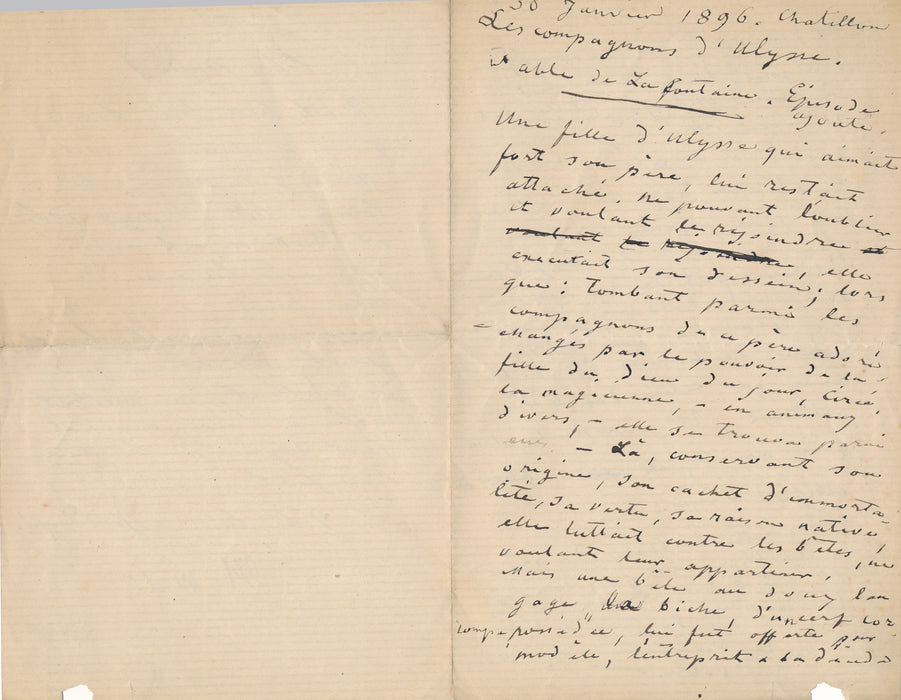 30 Janvier 1896. Chatillon
Les compagnons d'Ulysse.
Fable de La fontaine. Épisode
ajouté.
Une fille d'Ulysse qui aimait
fort son père, lui restait
attaché. ne pouvant l'oublier
et voulant le rejoindre et
voulant le rejoindre, elle
executait son dessein; lors
que: tombant parmi les
compagnons du ce père adoré
changés par le pouvoir de la
fille du dieu du jour, Circé,
la magicienne, - en animaux
divers, - elle se trouva parmi
eux - Là, conservant son
origine, son cachet d'immorta-
lité, sa vertu, sa raison native,
elle luttait contre les bêtes, ne
voulant leur appartenir.
Mais une bête au doux lan
gage, la biche, d'un cerf cor
possédée, lui fut offerte pour
modèle, l'entreprit